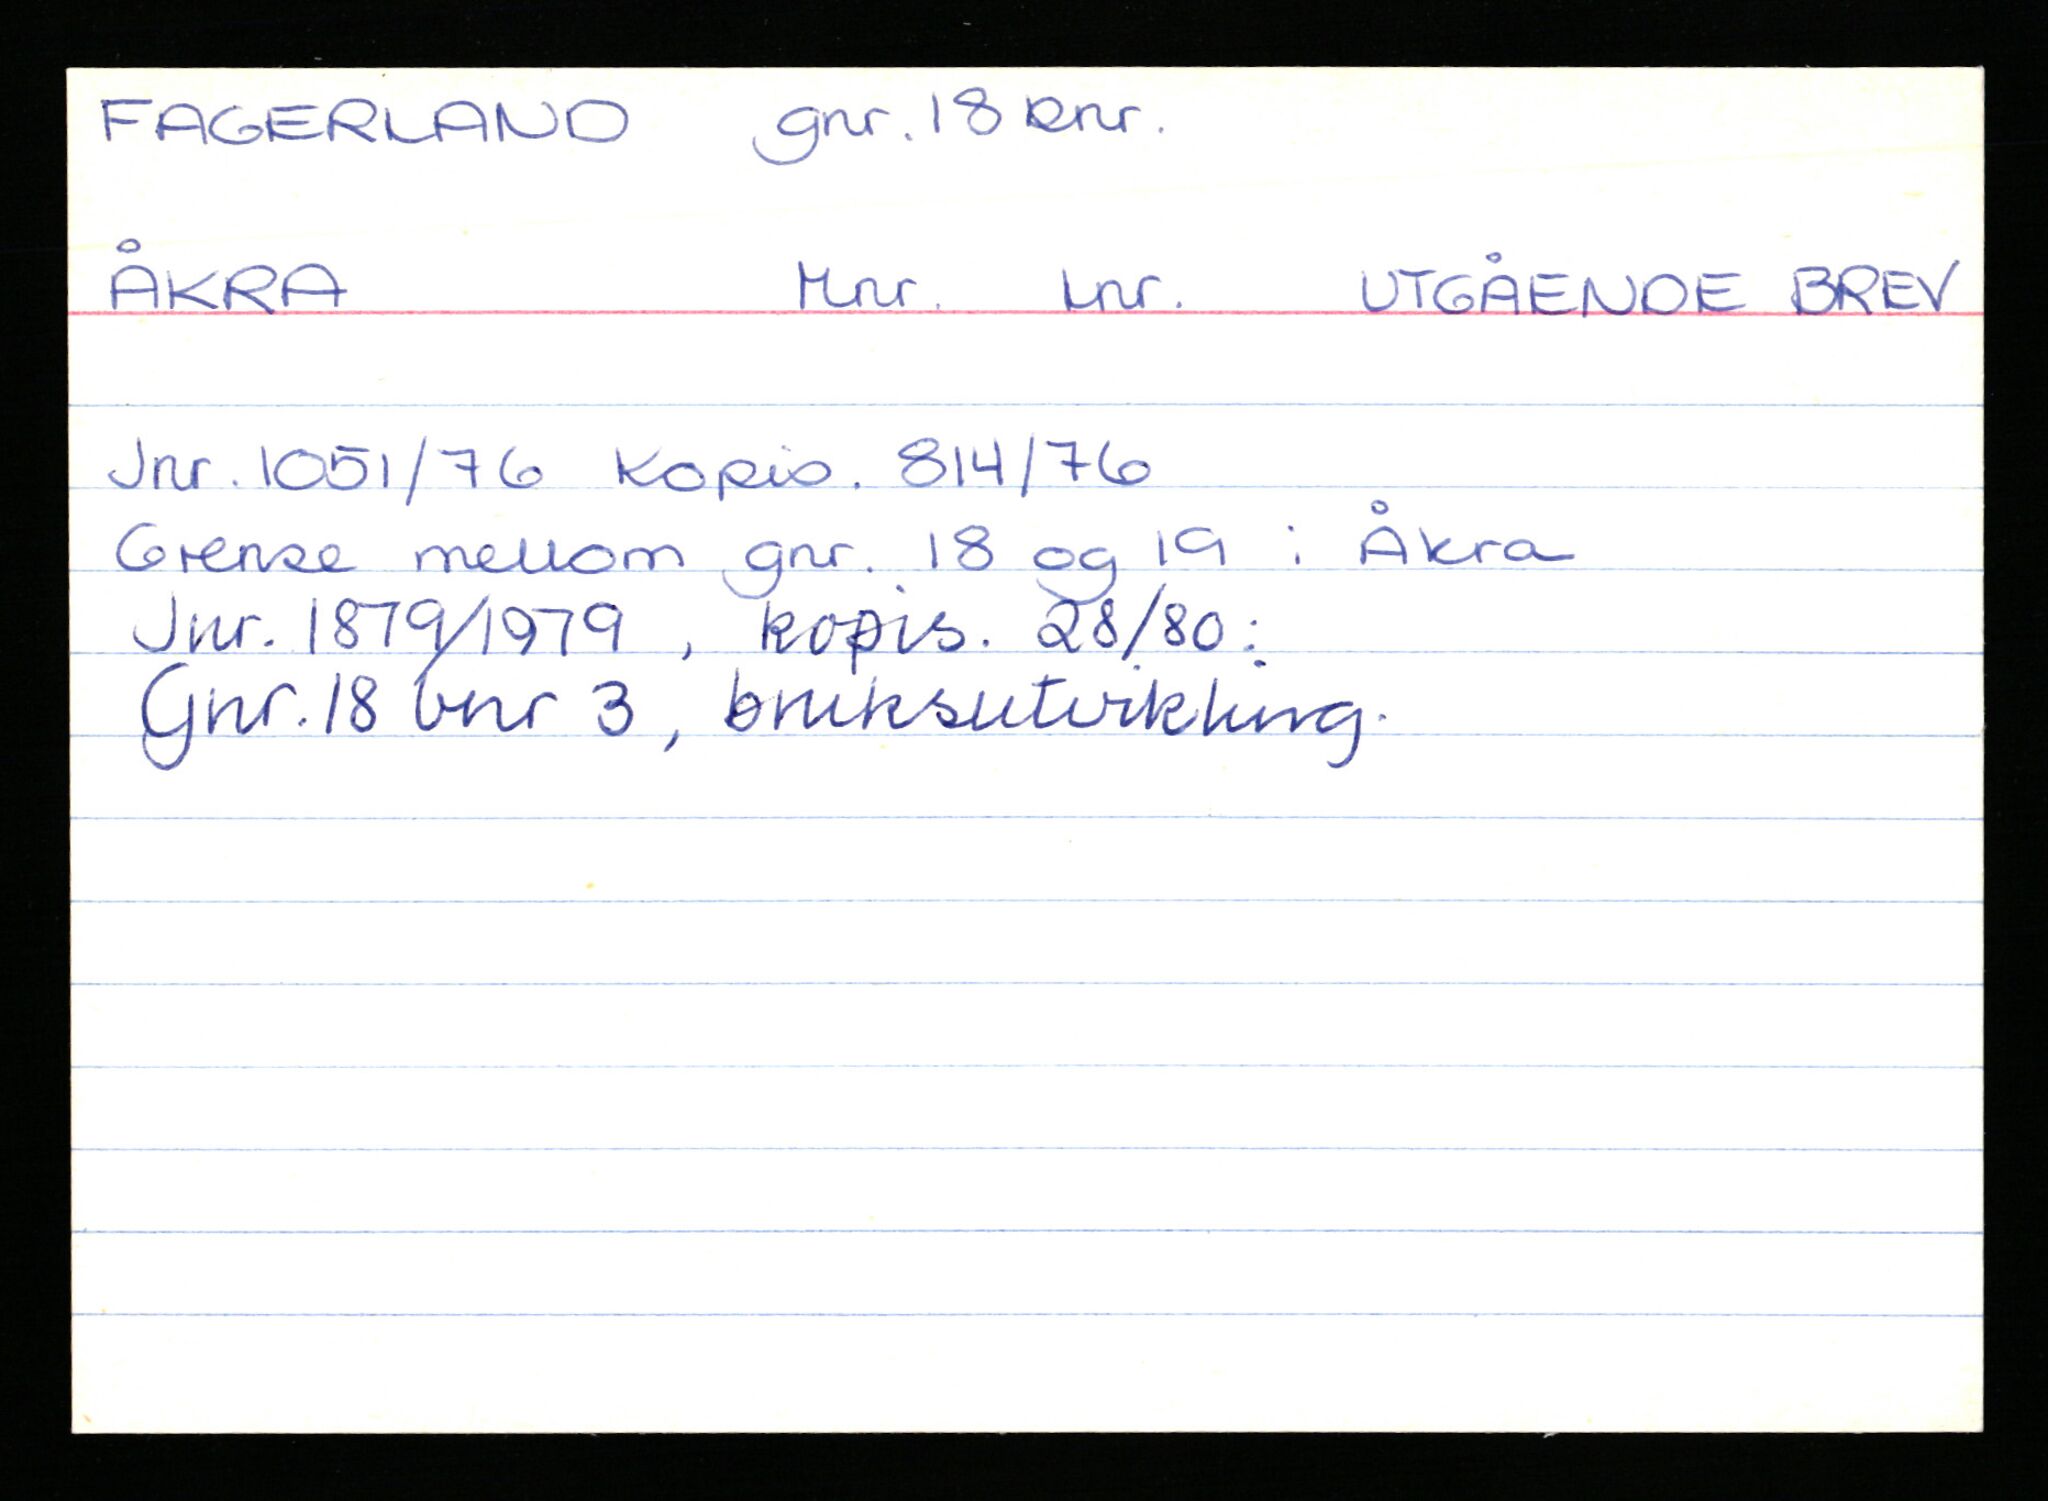 FAGERLAND gnr. 18 bnr.
ÅKRA Mnr. Lnr. UTGÅENDE BREV
Jnr. 1051/76 Kopis. 814/76
Grense mellom gnr. 18 og 19 i Åkra
Jnr. 1879/1979, kopis. 28/80:
Gnr. 18 bnr 3, bruksutvikling.